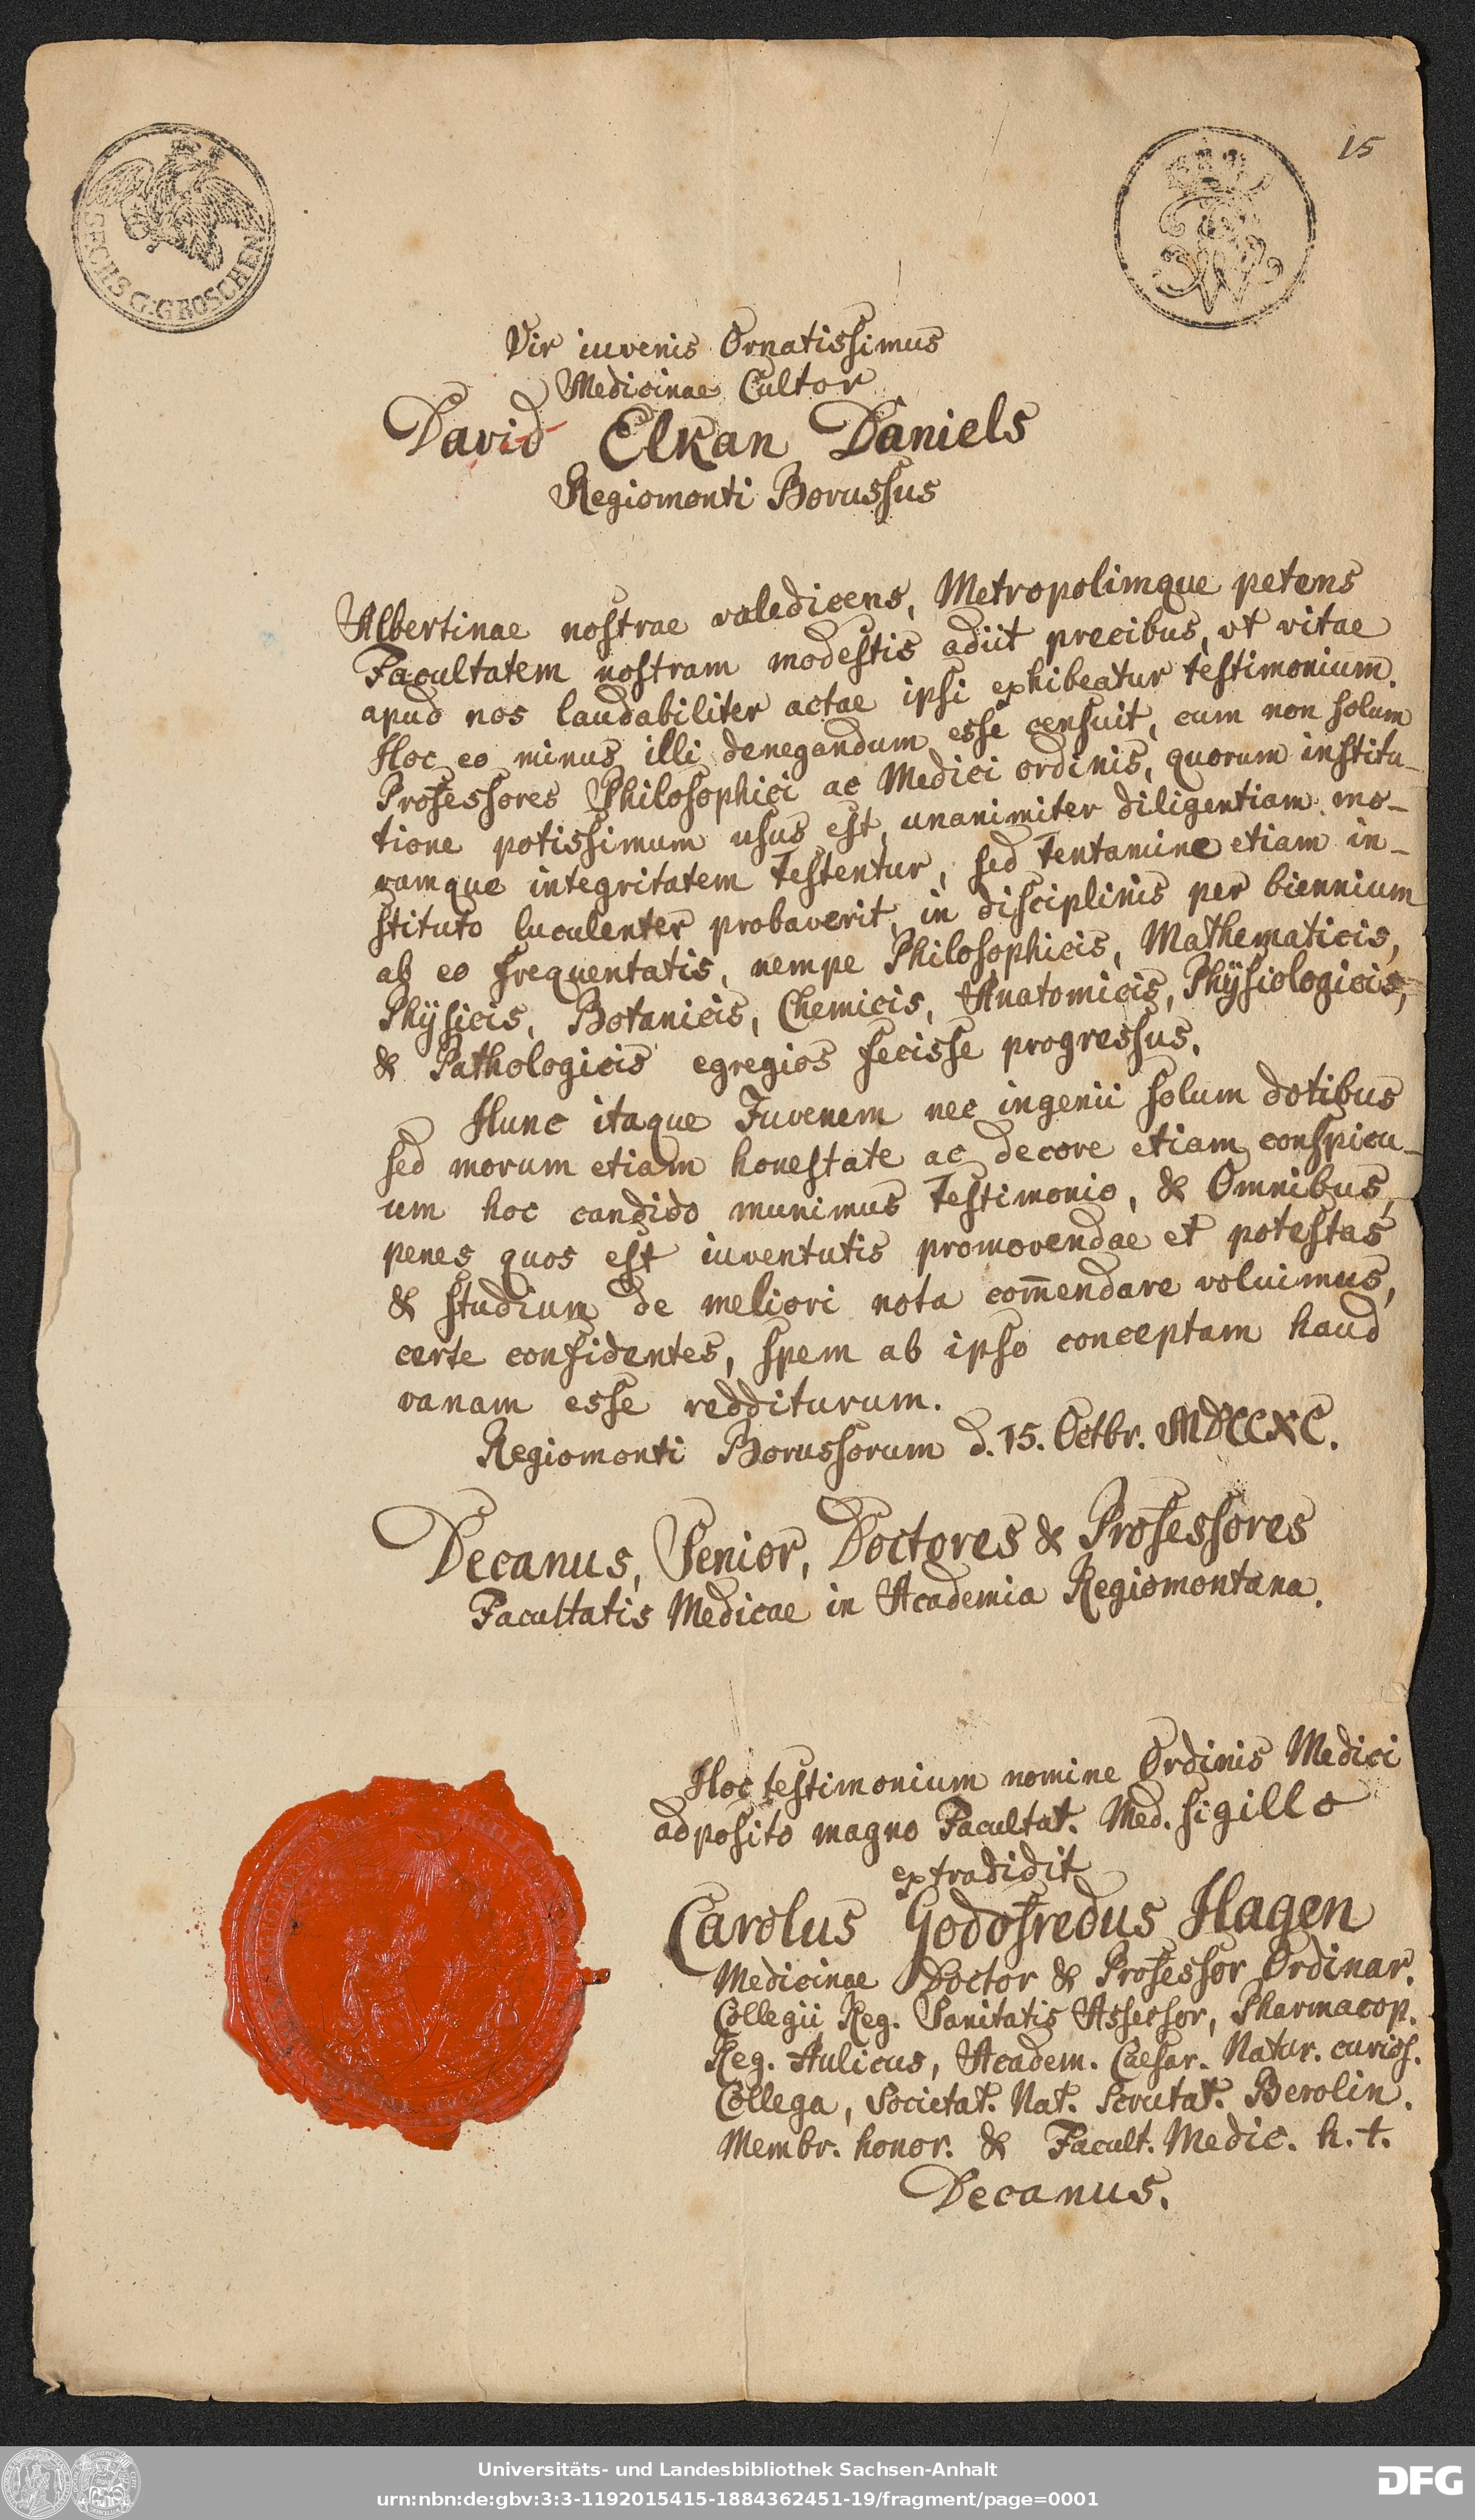 SECHS G. GROSCHEN
15
Vir iuvenis Ornatissimus
Medicinae Cultor
David Elkan Daniels
Regiomonti Borussus
Albertinae nostrae valedicens, Metropolimque petens
Facultatem nostram modestis adiit precibus, vt vitae
apud nos laudabiliter actae ipsi exhibeatur testimonium.
Hoc eo minus illi denegandum esse censuit, cum non solum
Professores Philosophici ac Medici ordinis, quorum institu-
tione potissimum usus est, unanimiter diligentiam mo-
rumque integritatem testentur, sed tentamine etiam in-
stituto luculenter probaverit, in disciplinis per biennium
ab eo frequentatis, nempe Philosophicis, Mathematicis,
Phÿsicis, Botanicis, Chemicis, Anatomicis, Phÿsiologicis,
& Pathologicis egregios fecisse progressus.
Hunc itaque Juvenem nec ingenii solum dotibus
sed morum etiam honestate ac decore etiam conspicu-
um hoc candido munimus testimonio, & Omnibus,
penes quos est iuventutis promovendae et potestas
& studium de meliori nota com̄endare voluimus,
certe confidentes, spem ab ipso conceptam haud
vanam esse redditurum.
Regiomonti Borussorum d. 15. Octbr. MDCCXC.
Decanus, Senior, Doctores & Professores
Facultatis Medicae in Academia Regiomontana.
Hoc testimonium nomine Ordinis Medici
adposito magno Facultat. Med. sigillo
extradidit
Carolus Godofredus Hagen
Medicinae Doctor & Professor Ordinar.
Collegii Reg. Sanitatis Assessor, Pharmacop.
Reg. Aulicus, Academ. Caesar. Natur. curios.
Collega, Societat. Nat. Scrutat. Berolin.
Membr. honor. & Facult. Medic. h. t.
Decanus.
Universitäts- und Landesbibliothek Sachsen-Anhalt
urn:nbn:de:gbv:3:3-1192015415-1884362451-19/fragment/page=0001
DFG